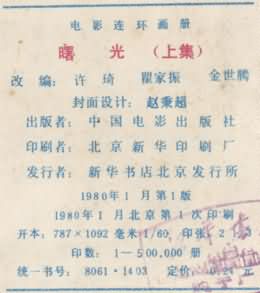 电影连环画册
曙光（上集）
改编：许琦 瞿家振 金世腾
封面设计：赵秉超
出版者：中国电影出版社
印刷者：北京新华印刷厂
发行者：新华书店北京发行所
1980年1月第1版
1980年1月北京第1次印刷
开本：787×1092毫米1/60 印张：2
印数：1—500,000册
统一书号：8061·1403 定价：0.24元